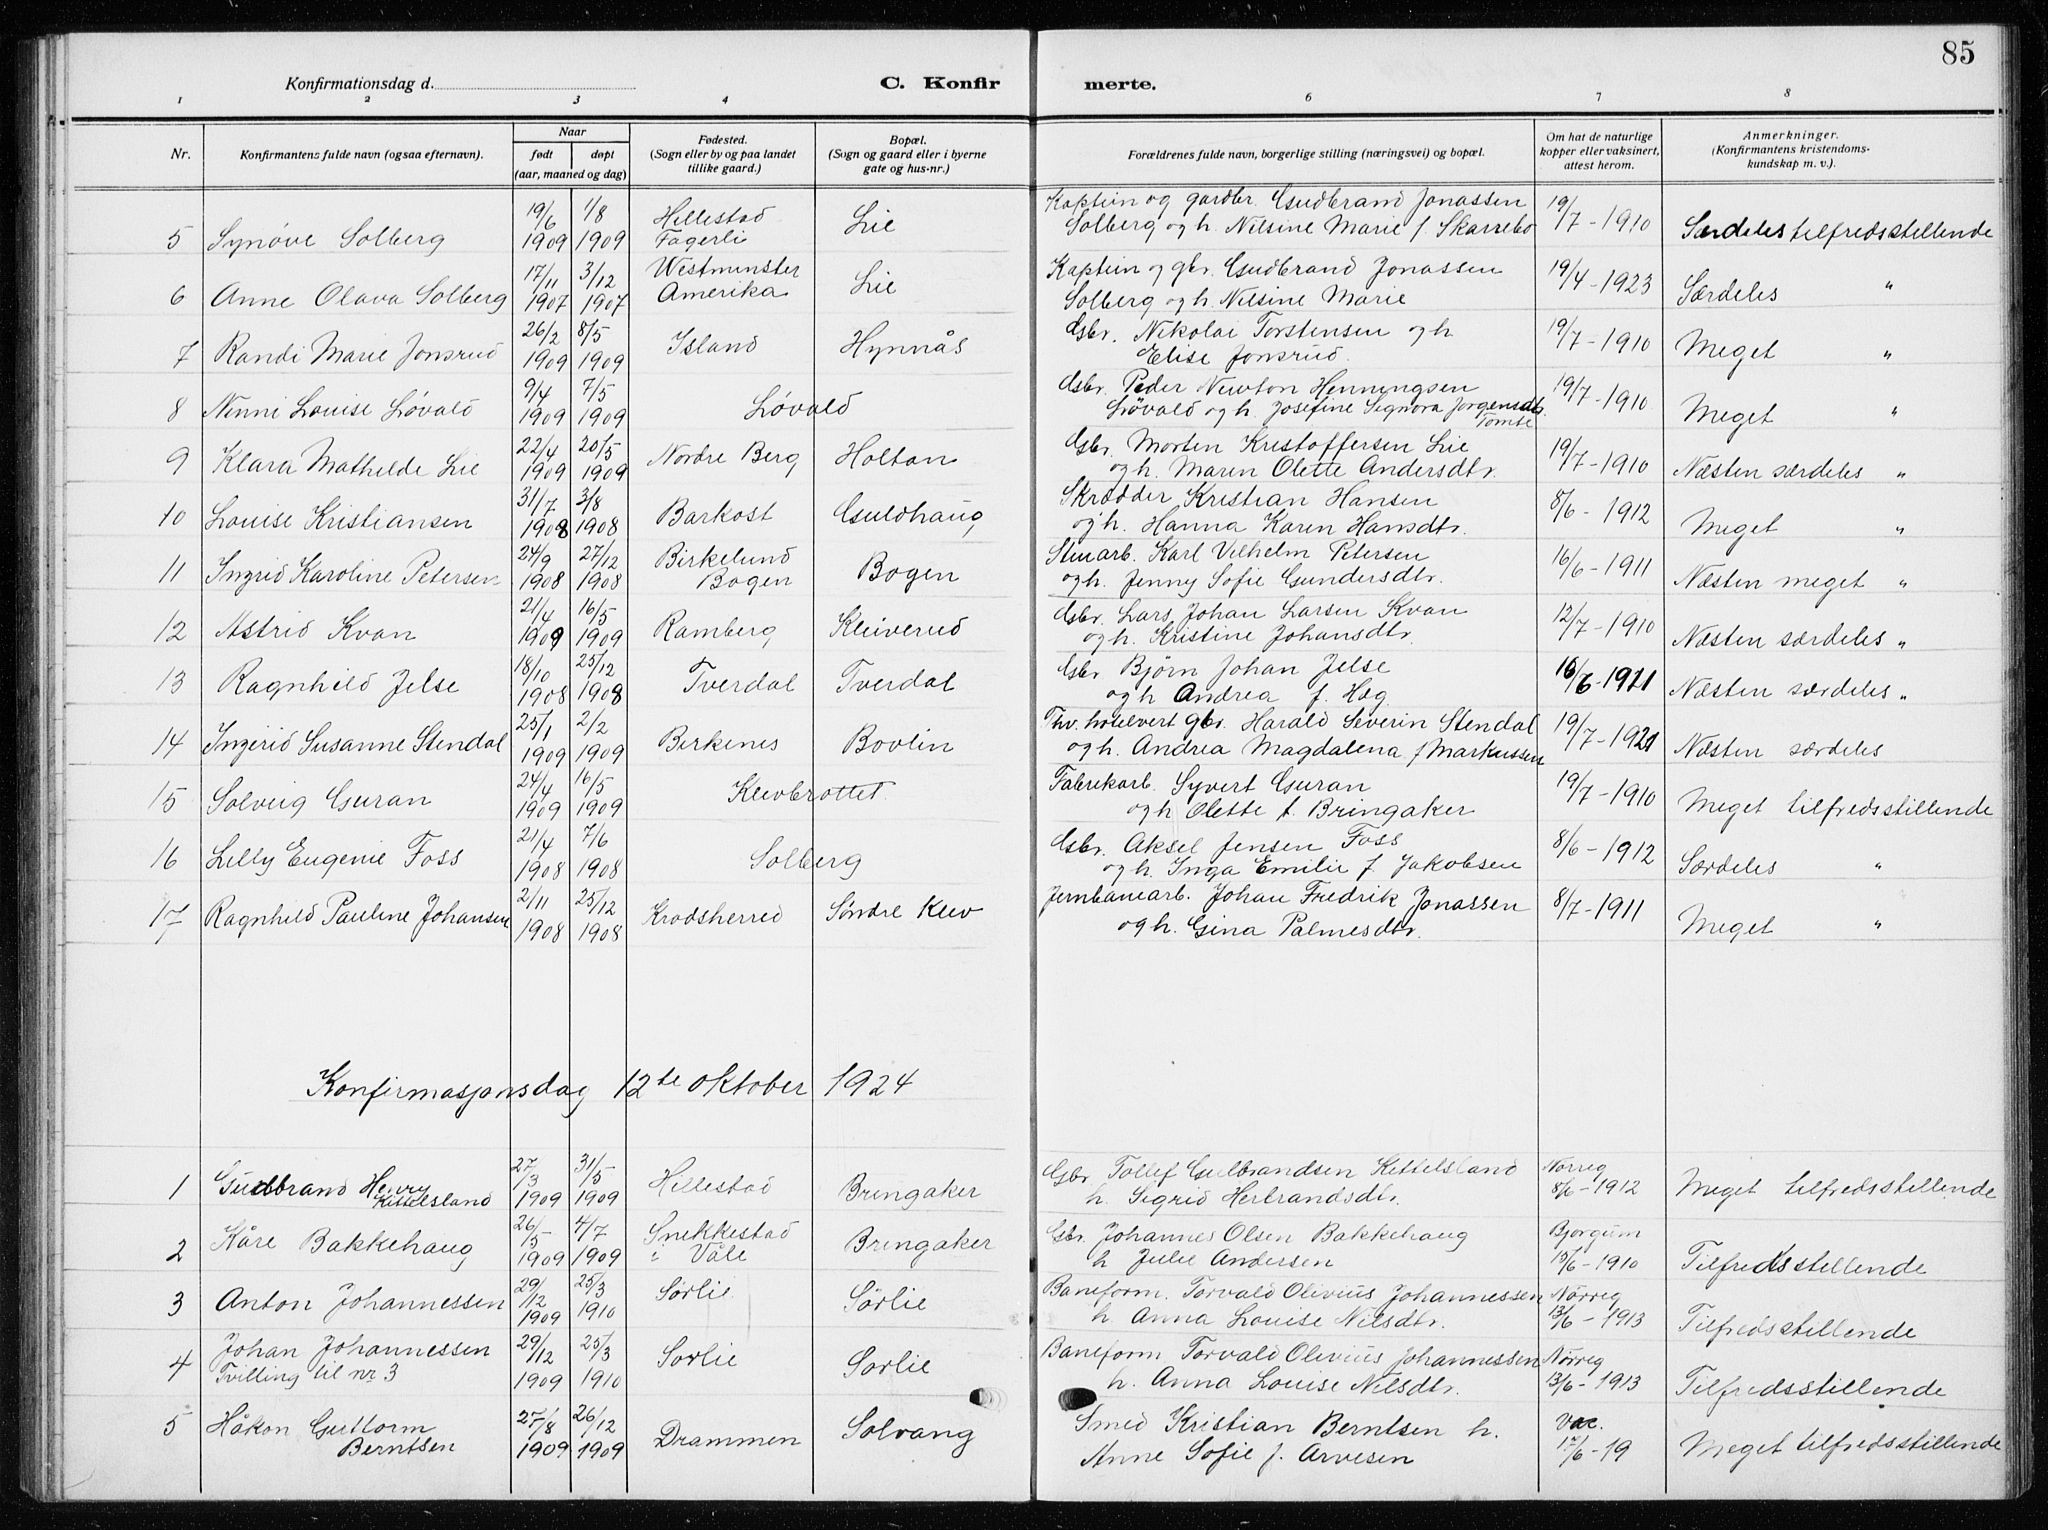 85
Konfirmationsdag d.
C. Konfirmerte.
1 2 3 4 5 6 7 8
Nr.
Konfirmantens fulde navn (ogsaa efternavn).
Naar
født døpt
(aar, maaned og dag)
Fødested.
(Sogn eller by og paa landet
tillike gaard.)
Bopæl.
(Sogn og gaard eller i byerne
gate og hus-nr.)
Forældrenes fulde navn, borgerlige stilling (næringsvei) og bopæl.
Om hat de naturlige
kopper eller vaksinert,
attest herom.
Anmerkninger.
(Konfirmantens kristendoms-
kundskap m. v.).
5 Synøve Solberg 19/6 1909 1/8 1909 Hillestad Fagerli Lie Kaptein og gardbr. Gudbrand Jonassen
Solberg og h. Nilsine Marie f Skarrebo 19/7-1910 Særdeles tilfredsstillende
6 Anne Olava Solberg 17/11 1907 3/12 1907 Westminster Amerika Lie Kaptein og gbr. Gudbrand Jonassen
Solberg og h. Nilsine Marie 19/4-1923 Særdeles "
7 Randi Marie Jonsrud 26/2 1909 8/5 1909 Island Hynnås Gbr. Nikolai Torstensen og h
Elise Jonsrud. 19/7-1910 Meget "
8 Nenni Louise Løvald 9/4 1909 7/5 1909 Løvald Gbr. Peder Newton Henningsen
Løvald og h. Josefine Signora Jørgensdtr.
Tomte 19/7-1910 Meget "
9 Klara Mathilde Lie 22/4 1909 20/5 1909 Nordre Berg Holtan Gbr. Morten Kristoffersen Lie
og h. Maren Olette Andersdtr. 19/7-1910 Næsten særdeles "
10 Louise Kristiansen 31/7 1908 3/8 1908 Barkost Guldhaug Skrædder Kristian Hansen
og h. Hanna Karen Hansdtr. 8/6-1912 Meget "
11 Ingrid Karoline Petersen 24/9 1908 27/12 1908 Birkelund Bogen Bogen Stenarb. Karl Vilhelm Petersen
og h. Jenny Sofie Gundersdtr. 16/6-1911 Næsten meget "
12 Astrid Kvan 21/4 1909 16/5 1909 Ramberg Kleiverud Gbr. Lars Johan Larsen Kvan
og h. Kristine Johansdtr. 12/7-1910 Næsten særdeles "
13 Ragnhild Jelse 18/10 1908 25/12 1908 Tverdal Tverdal Gbr Bjørn Johan Jelse
og h Andrea f. Hæg 16/6-1921 Næsten særdeles "
14 Ingerid Susanne Stendal 25/1 1909 2/2 1909 Birkenes Bovlin Fhv. hotelvert gbr. Harald Severin Stendal
og h. Andrea Magdalena f Markussen 19/7-1921 Næsten særdeles
15 Solveig Guran 24/4 1909 16/5 1909 Klevbrottet. Fabrikarb. Syvert Guran
og h Olette f. Bringaker 19/7-1910 Meget tilfredsstillende
16 Lilly Eugenie Foss 21/4 1908 7/6 1908 Solberg Gbr. Aksel Jensen Foss
og h. Inga Emilie f Jakobsen 8/6-1912 Særdeles "
17 Ragnhild Pauline Johansen 2/11 1908 25/12 1908 Krødsherred Søndre Klev Jernbanearb. Johan Fredrik Jonassen
og h. Gina Palmesdtr. 8/7-1911 Meget "
Konfirmasjonsdag 12te oktober 1924
1 Gudbrand Henry Kittelsland 27/3 1909 31/5 1909 Hillestad Bringaker Gbr. Tollef Gulbrandsen Kittelsland
h. Sigrid Herbrandsdtr. Nørreg 8/6-1912 Meget tilfredsstillende
2 Kåre Bakkehaug 26/5 1909 4/7 1909 Snekkestad i Våle Bringaker Gbr. Johannes Olsen Bakkehaug
h Julie Andersen Bjorgum 15/6-1910 Tilfredsstillende
3 Anton Johannessen 29/12 1909 25/3 1910 Sørlie Sørlie Baneform. Torvald Olivius Johannessen
h. Anna Louise Nilsdtr. Nørreg 13/6-1913 Tilfredsstillende
4 Johan Johannessen
Tvilling til nr. 3 29/12 1909 25/3 1910 Sørlie Sørlie Baneform Torvald Olivius Johannessen
h. Anna Louise Nilsdtr. Nørreg 13/6-1913 Tilfredsstillende
5 Håkon Guttorm
Berntsen 27/8 1909 26/12 1909 Drammen Solvang Smed Kristian Berntsen h.
Anne Sofie f. Arvesen vac. 17/6-19 Meget tilfredsstillende